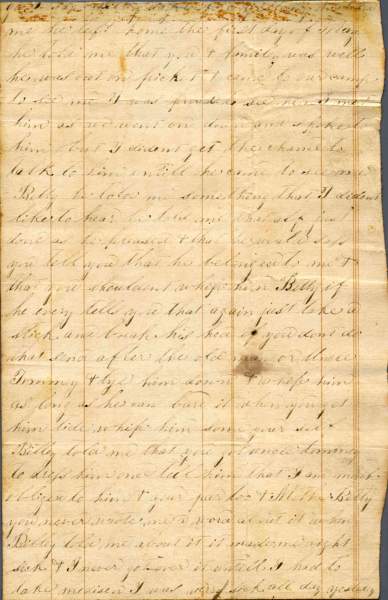 me he left home the first day of May
he told me that you & family was well
he was out on picket & came to our camp
to see me I was proud to see he met
him as we went on down and spoke to
him but I didont get the chance to
talk to him untill he came to see me
Billy he told me something that I didont
like to hear he told me that self just
done as he pleased & that he would
you tell you that he belonged to me &
that you shouldnt whipe him Billy if
he every tells you that again just take a
stick and break his hed if you dont do
that send after the old man or Uncle
Tommy & tye him down & whipe him
as long as he can bare it when you get
him tide whipe him some your self
Billy told me that you got uncle tommy
to him one tell him that I am much
oblige to him & your & Billy
you never wrote me a word about it when
Billy told me about it it made me right
sick & I never got over it untill I had to
take medison I was sick all day yesterday